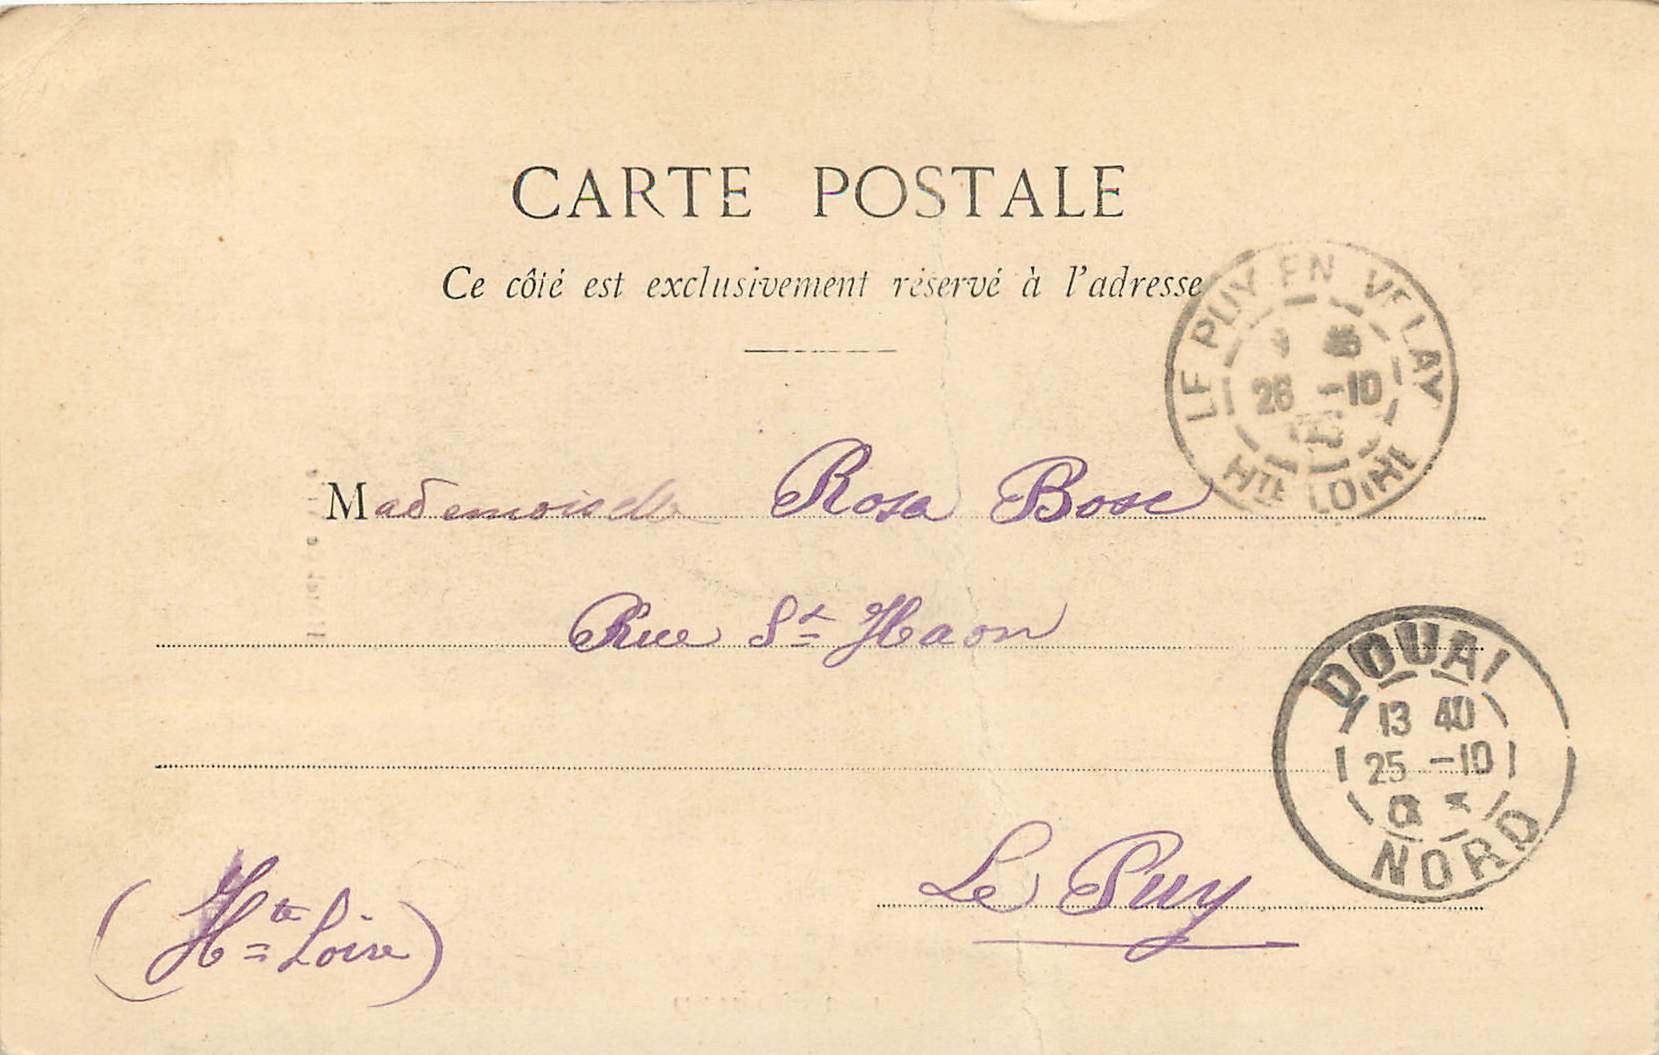 CARTE POSTALE
Ce côté est exclusivement réservé à l'adresse
LE PUY EN VELAY
26 -10
HTE LOIRE
Mademoiselle Rosa Bosc
Rue St Haon
DOUAI
13 40
25 -10
NORD
Le Puy
(Hte Loire)